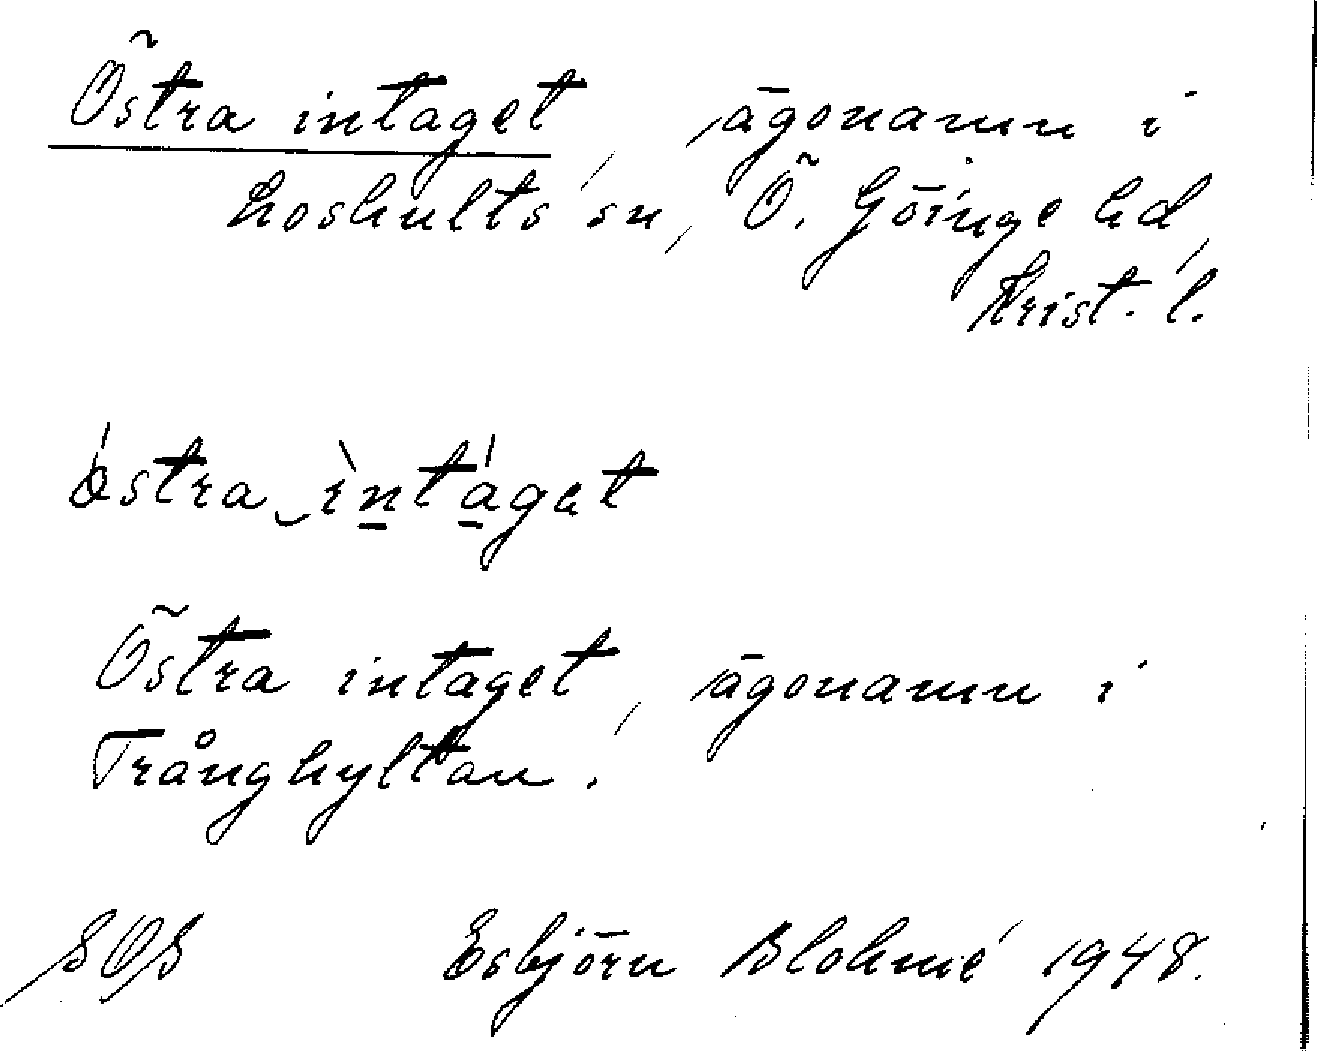 Östra intaget, ägonamn i
Loshults sn, Ö. Göinge hd,
Krist. l.
östra ‿ ìntáget
Östra intaget, ägonamn i
Trånghyltan.
SOS Esbjörn Blohmé 1948.